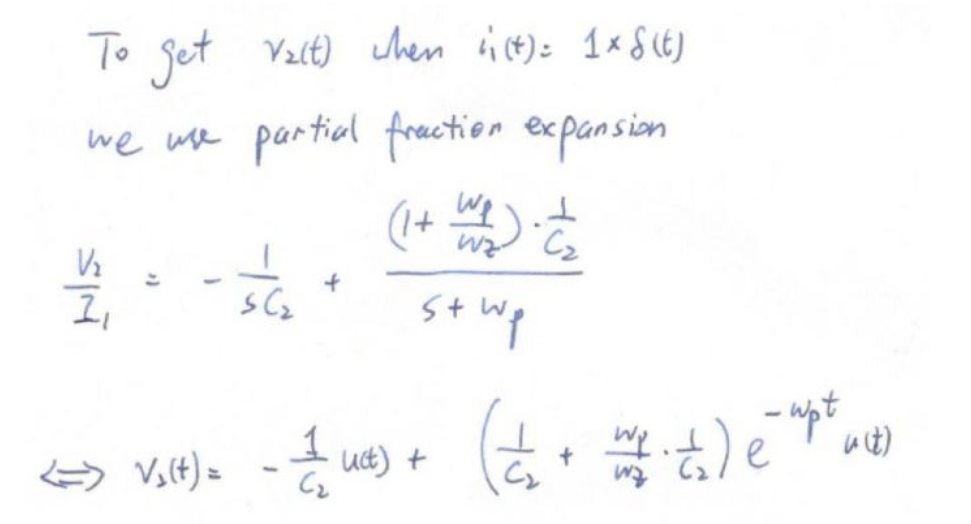 To get V₂(t) when i₁(t) = 1 × δ(t)
we use partial fraction expansion
V₂/I₁ = - 1/(sC₂) + ((1 + wp/wz) · 1/C₂)/(s + wp)
⇔ V₂(t) = - 1/C₂ u(t) + (1/C₂ + wp/wz · 1/C₂) e^(-wpt) u(t)